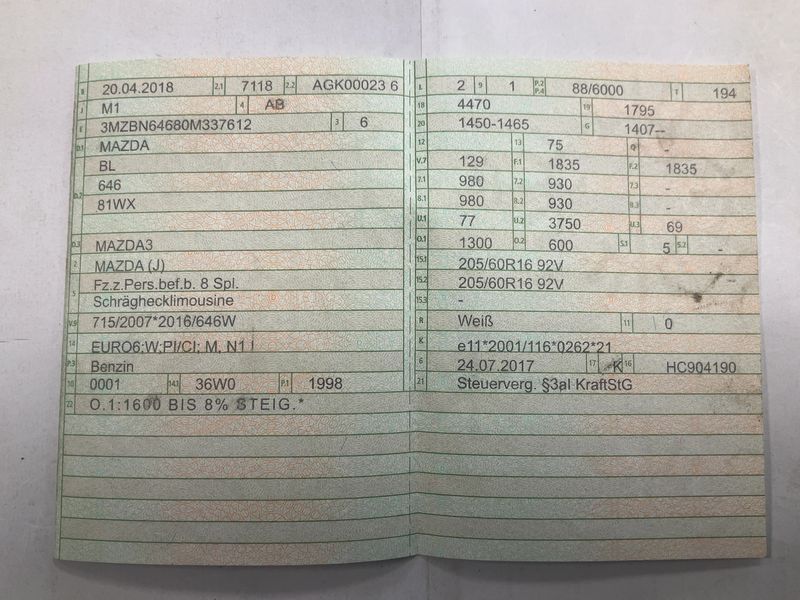 B 20.04.2018 2.1 7118 2.2 AGK00023 6
J M1 4 AB
E 3MZBN64680M337612 3 6
D.1 MAZDA
BL
646
D.2 81WX
D.3 MAZDA3
2 MAZDA (J)
5 Fz.z.Pers.bef.b. 8 Spl.
Schräghecklimousine
V.9 715/2007*2016/646W
14 EURO6;W;PI/CI; M, N1 I
P.3 Benzin
10 0001 14.1 36W0 P.1 1998
22 O.1:1600 BIS 8% STEIG.*
L 2 9 1 P.2 P.4 88/6000 T 194
18 4470 19 1795
20 1450-1465 G 1407--
12 13 75 Q -
V.7 129 F.1 1835 F.2 1835
7.1 980 7.2 930 7.3 -
8.1 980 8.2 930 8.3 -
U.1 77 U.2 3750 U.3 69
O.1 1300 O.2 600 S.1 5 S.2 -
15.1 205/60R16 92V
15.2 205/60R16 92V
15.3 -
R Weiß 11 0
K e11*2001/116*0262*21
6 24.07.2017 17 K 16 HC904190
21 Steuerverg. §3al KraftStG